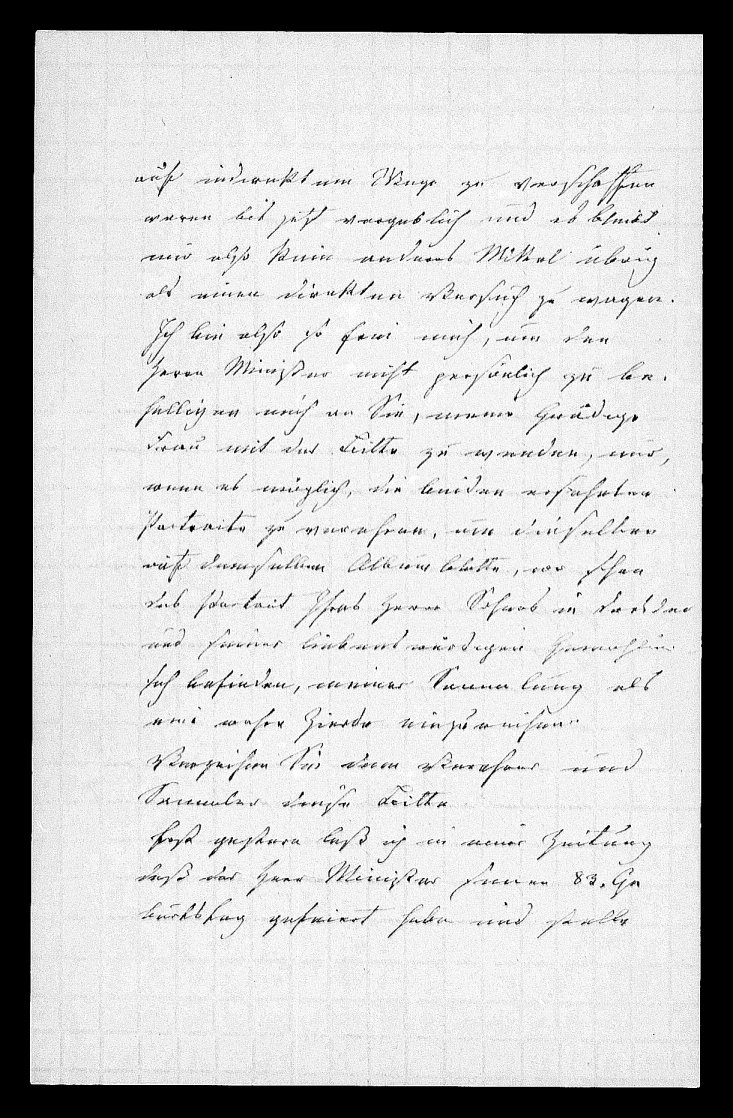 auf indirektem Wege zu verschaffen
waren bis jetzt vergeblich und es bleibt
mir also kein anderes Mittel übrig
als einen direkten Versuch zu wagen.
Ich bin also so frei mich, um den
Herrn Minister nicht persönlich zu be-
helligen mich an Sie, meine Gnädige
Frau mit der Bitte zu wenden, mir,
wenn es möglich, die beiden ersehnten
Portraits zu verehren, um dieselben
auf demselben Albumblatte, wo schon
das Portrait Ihres Herrn Sohnes in Dresden
und seiner liebenswürdigen Gemahlin
sich befinden, meiner Sammlung als
eine wahre Zierde einzureihen.
Verzeihen Sie dem Verehrer und
Sammler diese Bitte.
Erst gestern las ich in einer Zeitung
daß der Herr Minister seinen 83. Ge
burtstag gefeiert habe und stelle